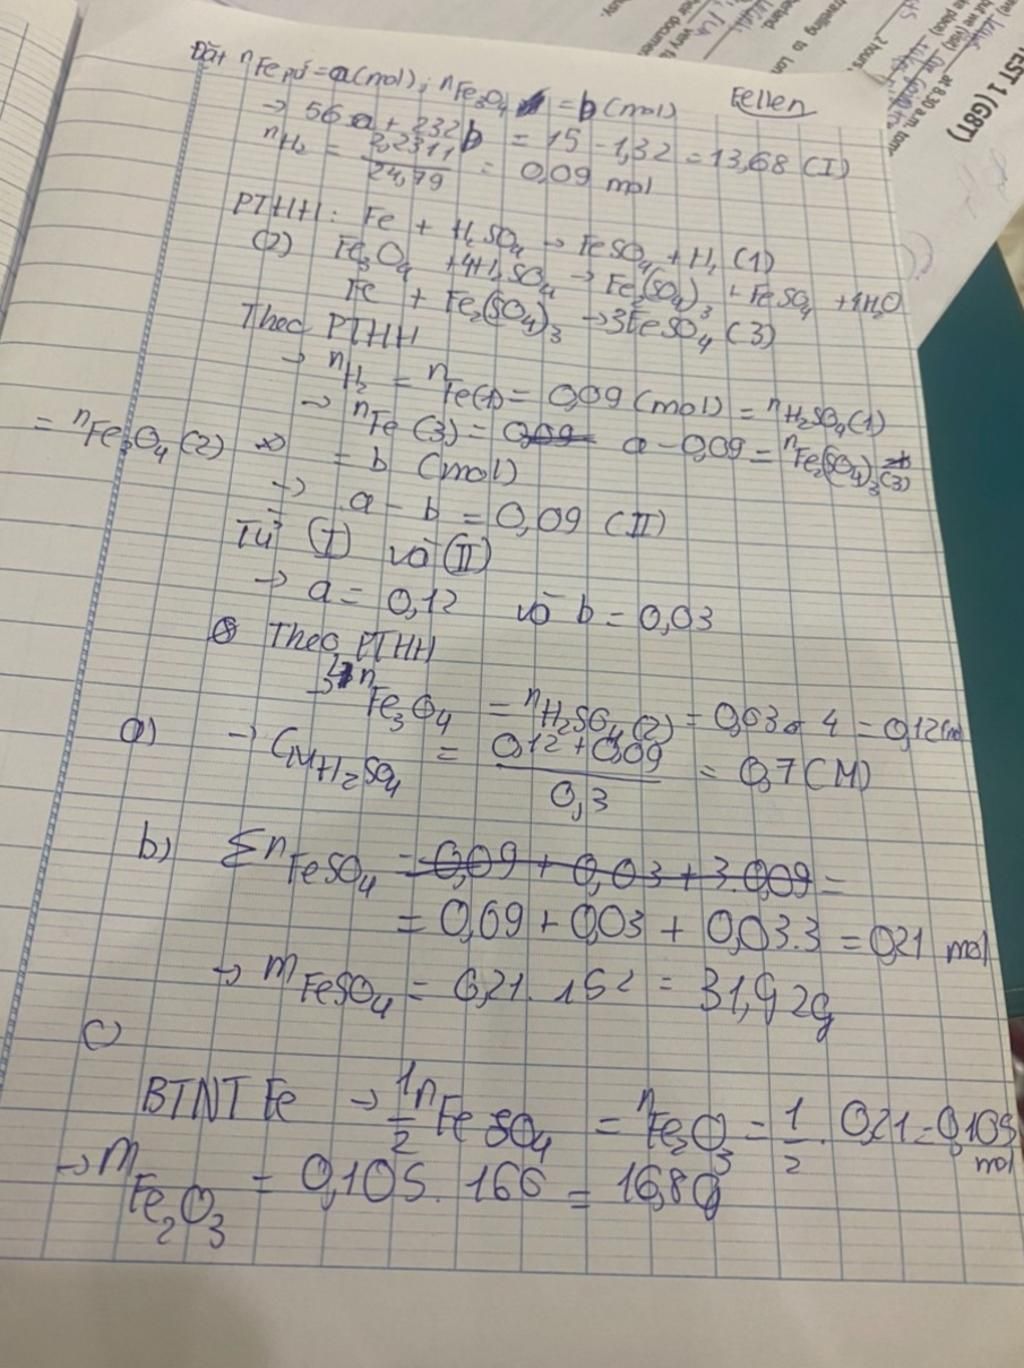 Đặt nFe pứ = a(mol); nFe3O4 = b(mol) Eellen
→ 56a + 232b = 15 - 1,32 = 13,68 (I)
nH2 = 2,2311/24,79 = 0,09 mol
PTHH: Fe + H2SO4 → FeSO4 + H2 (1)
(2) Fe3O4 + 4H2SO4 → Fe2(SO4)3 + FeSO4 + 4H2O
Fe + Fe2(SO4)3 → 3FeSO4 (3)
Theo PTHH
→ nH2 = nFe(1) = 0,09 (mol) = nH2SO4(1)
→ nFe (3) = a - 0,09 = nFe2(SO4)3 (3)
= nFe3O4 (2) = b (mol)
→ a - b = 0,09 (II)
Từ (I) và (II)
→ a = 0,12 và b = 0,03
Theo PTHH
nFe3O4 = nH2SO4 (2) = 0,03 . 4 = 0,12
a) → CM H2SO4 = 0,12 + 0,09 / 0,3 = 0,7 (M)
b) Σ nFeSO4 = 0,09 + 0,03 + 3.0,09 =
= 0,09 + 0,03 + 0,03.3 = 0,21 mol
→ mFeSO4 = 0,21 . 152 = 31,92g
c)
BTNT Fe → 1/2 nFeSO4 = nFe2O3 = 1/2 . 0,21 = 0,105 mol
→ mFe2O3 = 0,105 . 166 = 16,8g
TEST 1 (G8T)
at 8.30 a.m.
2 hours
travelling to Lon